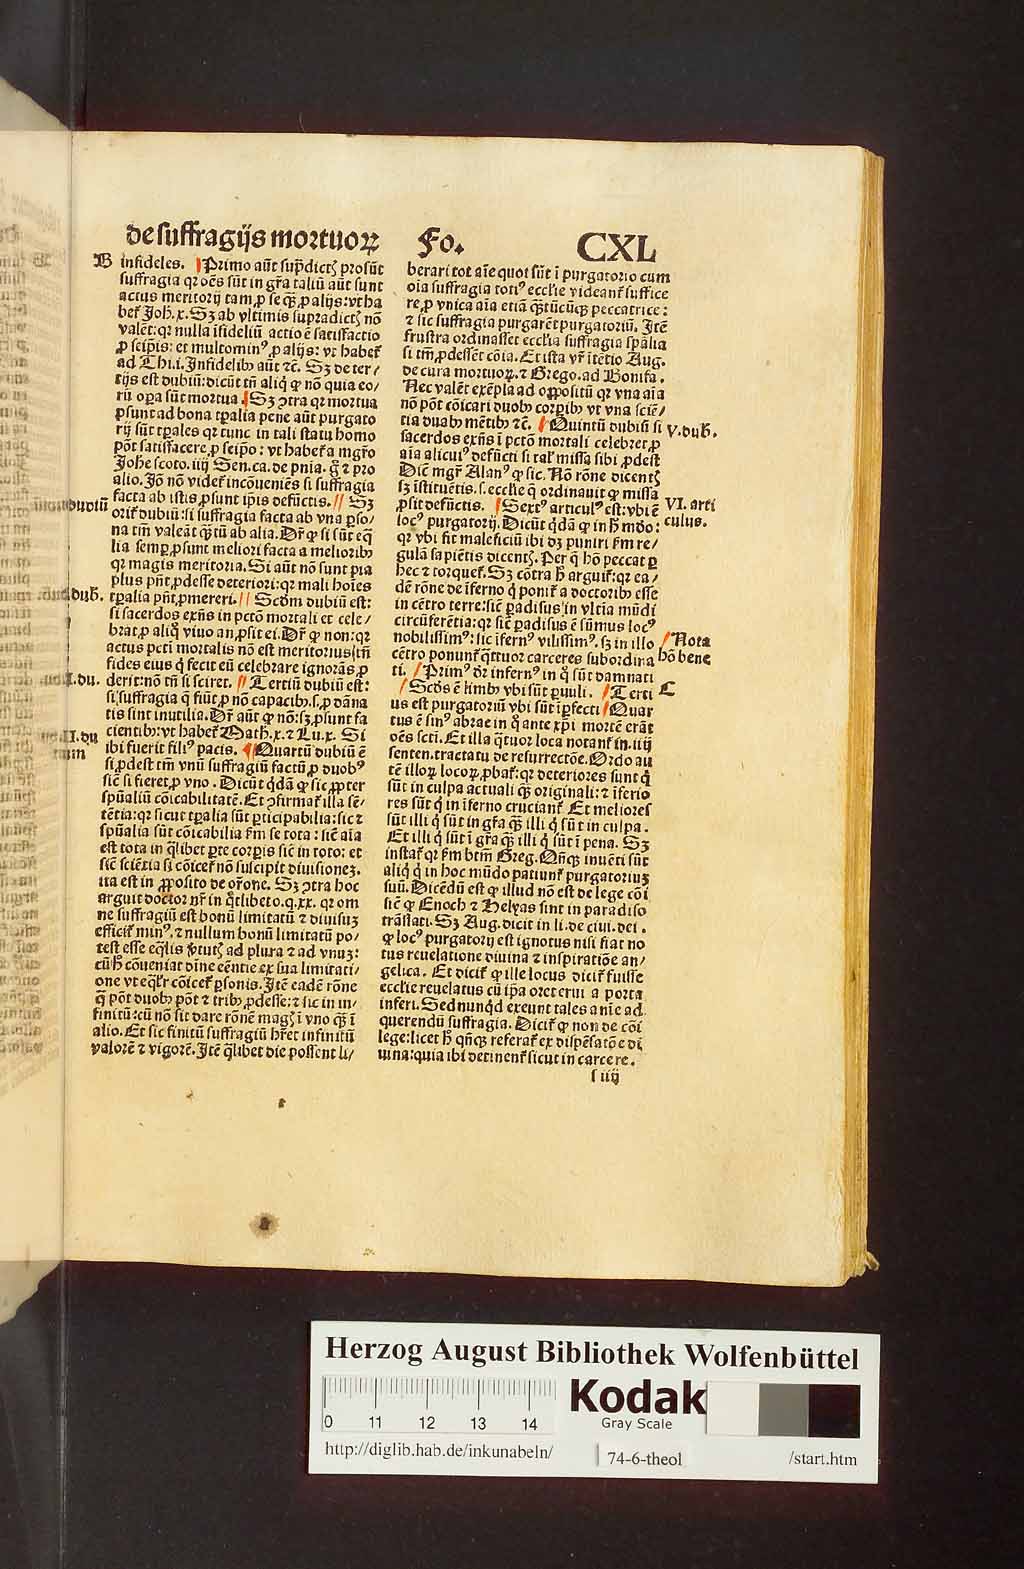 de suffragijs mortuoꝝ Fo. CXL
B infideles. Primo aūt sup̄dictꝫ prosūt
suffragia qꝛ oēs sūt in gr̄a taliū aūt sunt
actus meritorij tam ꝓ se qꝫ ꝓ alijs: vt ha
bet̄ Joh̄. x. Sꝫ ab vltimis supradictꝫ nō
valēt: qꝛ nulla īfideliū actio ē satisfactio
ꝓ seip̄is: et multominꝰ ꝓ alijs: vt habet̄
ad Thi. i. Infidelibꝫ aūt ⁊c̄. Sꝫ de ter/
tijs est dubiū: dicūt tn̄ aliq̄ ꝙ nō quia eo/
rū oꝑa sūt mortua. Sꝫ ꝯtra qꝛ mortua
ꝓsunt ad bona tꝑalia pene aūt purgato
rij sūt tꝑales qꝛ tunc in tali statu homo
pōt satisfacere ꝓ seip̄o: vt habet̄ a mgr̄o
Johe scoto. iiij Sen. ca. de pn̄ia. q̄ ⁊ pro
alio. Jō nō videt̄ incōueniēs si suffragia
facta ab istis ꝓsunt ip̄is defūctis. // Sꝫ
orit̄ dubiū: si suffragia facta ab vna ꝑso/
na tm̄ valeāt qꝫtū ab alia. Dr̄ ꝙ si sūt eq̄
lia semꝑ ꝓsunt meliori facta a melioribꝫ
qꝛ magis meritoria. Si aūt nō sunt pia
plus pn̄t ꝓdesse deteriori: qꝛ mali hoīes
tꝑalia pn̄t ꝓmereri. // Scdm dubiū est:
si sacerdos exn̄s in pctō mortali et cele/
brat ꝓ aliq̄ viuo an ꝓsit ei. Dr̄ ꝙ non: qꝛ
actus pcti mortalis nō est meritorius tn̄
fides eius q̄ fecit eū celebrare ignorās ꝓ
derit: nō tn̄ si sciret. // Tertiū dubiū est:
si suffragia q̄ fiūt ꝓ nō capacibꝫ. s. ꝓ dāna
tis sint inutilia. Dr̄ aūt ꝙ nō: sꝫ ꝓsunt fa
cientibꝫ: vt habet̄ Math. x. ⁊ Lu. x. Si
ibi fuerit filiꝰ pacis. Quartū dubiū ē
si ꝓdest tm̄ vnū suffragiū factū ꝓ duobꝰ
sicē si fieret ꝓ vno. Dicūt q̄dā ꝙ sic ꝓpter
spūaliū cōicabilitatē. Et ꝯfirmat̄ illa sē/
tētia: qꝛ sicut tꝑalia sūt ꝑticipabilia: sic ⁊
spūalia sūt cōicabilia ẜm se tota: sicē aīa
est tota in q̄libet ꝑte corꝑis sicē in toto: et
sicē sciētia si cōicet̄ nō suscipit diuisionēꝫ.
ita est in ꝓposito de or̄one. Sꝫ ꝯtra hoc
arguit doctor nr̄ in q̄tlibeto. q. xx. qꝛ om
ne suffragiū est bonū limitatū ⁊ diuisuꝫ
efficit̄ minꝰ. ⁊ nullum bonū limitatū po/
test esse eq̄lis v̄tutꝫ ad plura ⁊ ad vnuꝫ:
cū h̄ cōueniat oīne eēntie ex sua limitati/
one vt eq̄lr̄ cōicet̄ ꝑsonis. Itē eadē rōne
q̄ pōt duobꝫ pōt ⁊ tribꝫ ꝓdesse: ⁊ sic in in/
finitū: cū nō sit dare rōnē magꝫ ī vno qꝫ ī
alio. Et sic finitū suffragiū hr̄et infinitū
valorē ⁊ vigorē. Itē q̄libet die possent li/
ūmū dubiū
dūm dub̄.
I. du.
II. du
um
berari tot aīe quot sūt ī purgatorio cum
oīa suffragia totiꝰ ecclīe videant̄ suffice
re ꝓ vnica aīa etiā qꝫtūcūqꝫ peccatrice:
⁊ sic suffragia purgarēt purgatoriū. Itē
frustra ordinasset ecclīa suffragia spālia
si tm̄ ꝓdessēt cōia. Et ista vr̄ ītētio Aug.
de cura mortuoꝝ. ⁊ Grego. ad Bonifa.
Nec valēt exēpla ad oppositū qꝛ vna aīa
nō pōt cōicari duobꝫ corꝑibꝫ vt vna sciē/
tia duabꝫ mētibꝫ ⁊c̄. Quintū dubiū si
sacerdos exn̄s ī pctō mortali celebret ꝓ
aīa alicuiꝰ defūcti si tal̄ missa sibi ꝓdest
Dic̄ mgr̄ Alanꝰ ꝙ sic. Nō rōne dicentꝫ
sꝫ īstituētis. s. ecclīe q̄ ordinauit ꝙ missa
ꝓsit defūctis. Sextꝰ articulꝰ est: vbi ē
locꝰ purgatorij. Dicūt q̄dā ꝙ in h̄ mūdo:
qꝛ vbi fit maleficiū ibi dꝫ puniri ẜm re/
gulā sapiētis dicentꝫ. Per q̄ hō peccat ꝑ
hec ⁊ torquet̄. Sꝫ cōtra h̄ arguit̄: qꝛ ea/
dē rōne de īferno q̄ ponit̄ a doctoribꝫ esse
in cētro terre: sicē ꝑadisus in vltīa mūdi
circūferētia: qꝛ sicē ꝑadisus ē sūmus locꝰ
nobilissimꝰ: sic īfernꝰ vilissimꝰ. sꝫ in illo
cētro ponunt̄ q̄ttuor carceres subordina
ti. Primꝰ dr̄ infernꝰ in q̄ sūt damnati
Scd̄s ē līmbꝫ vbi sūt ꝑuuli. Terti
us est purgatoriū vbi sūt īꝑfecti Quar
tus ē sinꝰ abrae in q̄ ante xp̄i mortē erāt
oēs scti. Et illa q̄tuor loca notant̄ in. iiij
senten. tractatu de resurrectōe. Ordo au
tē illoꝝ locoꝝ ꝓbat̄: qꝛ deteriores sunt q̄
sūt in culpa actuali qꝫ originali: ⁊ īferio
res sūt q̄ in īferno cruciant̄ Et meliores
sūt illi q̄ sūt in gr̄a qꝫ illi q̄ sūt in culpa.
Et illi q̄ sūt ī gr̄a qꝫ illi q̄ sūt ī pena. Sꝫ
instat̄ qꝛ ẜm btm̄ Greg. Qn̄qꝫ inuēti sūt
aliq̄ q̄ in hoc mūdo patiunt̄ purgatoriuꝫ
suū. Dicēdū est ꝙ illud nō est de lege cōi
sicē ꝙ Enoch ⁊ Helyas sint in paradiso
trāstati. Sꝫ Aug. dicit in li. de ciui. dei.
ꝙ locꝰ purgatorij est ignotus nisi fiat no
tus reuelatione diuina ⁊ inspiratiōe an/
gelica. Et dicit̄ ꝙ ille locus dicit̄ fuisse
ecclīe reuelatus cū ip̄a oret erui a porta
inferi. Sed nunq̄d exeunt tales aīe ad
querendū suffragia. Dicit̄ ꝙ non de cōi
lege: licet h̄ qn̄qꝫ referat̄ ex dispēsatōe di
uina: quia ibi detinent̄ sicut in carcere.
s iiij
V. dub̄.
VI. arti
culus.
Nota
hō bene
C
Herzog August Bibliothek Wolfenbüttel
0 11 12 13 14
Kodak
Gray Scale
http://diglib.hab.de/inkunabeln/ 74-6-theol /start.htm